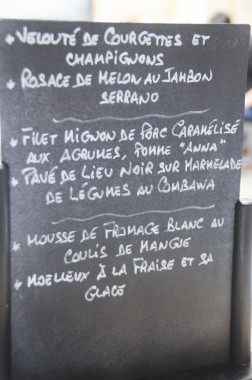 * VELOUTÉ DE COURGETTES ET
CHAMPIGNONS
* ROSACE DE MELON AU JAMBON
SERRANO
* FILET MIGNON DE PORC CARAMÉLISÉ
AUX AGRUMES, POMME "ANNA"
* PAVÉ DE LIEU NOIR SUR MARMELADE
DE LÉGUMES AU COMBAWA
* MOUSSE DE FROMAGE BLANC AU
COULIS DE MANGUE
* MOELLEUX À LA FRAISE ET SA
GLACE